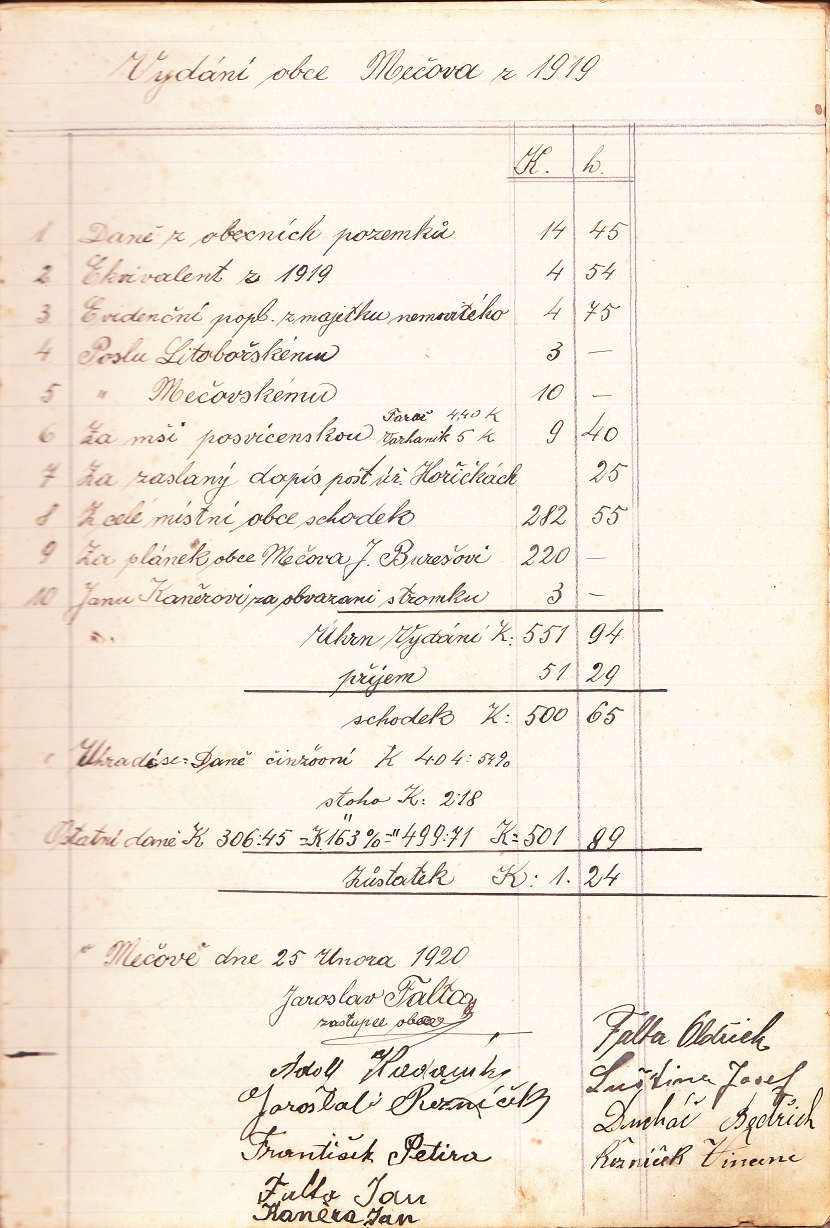 Vydání obce Mečova z 1919
K. h.
1 Daně z obecních pozemků 14 45
2 Ekvivalent z 1919 4 54
3 Evidenční popl. z majetku nemovitého 4 75
4 Poslu Litobořskému 3 —
5 " Mečovskému 10 —
Farář 4,40 K
6 Za mši posvícenskou Varhaník 5 K 9 40
7 Za zaslaný dopis pošt. úř. Hořičkách 25
8 Z celé místní obce schodek 282 55
9 Za plánek obce Mečova J. Burešovi 220 —
10 Janu Kaněrovi za obvazani stromku 3 —
Úhrn Vydání K: 551 94
příjem 51 29
schodek K: 500 65
Uhradí se: Daně činžovní K 404: 54%
z toho K: 2.18
Ostatní daně K 306:45 = K 163 % = " 499:71 K= 501 89
Zůstatek K: 1. 24
V Mečově dne 25 Února 1920
Jaroslav Falta
zastupce obce
Falta Oldřich
Adolf
Luština Josef
Jaroslav Řezníček
Ducháč Bedřich
František Petira
Řezníček Vincenc
Falta Jan
Kaněra Jan